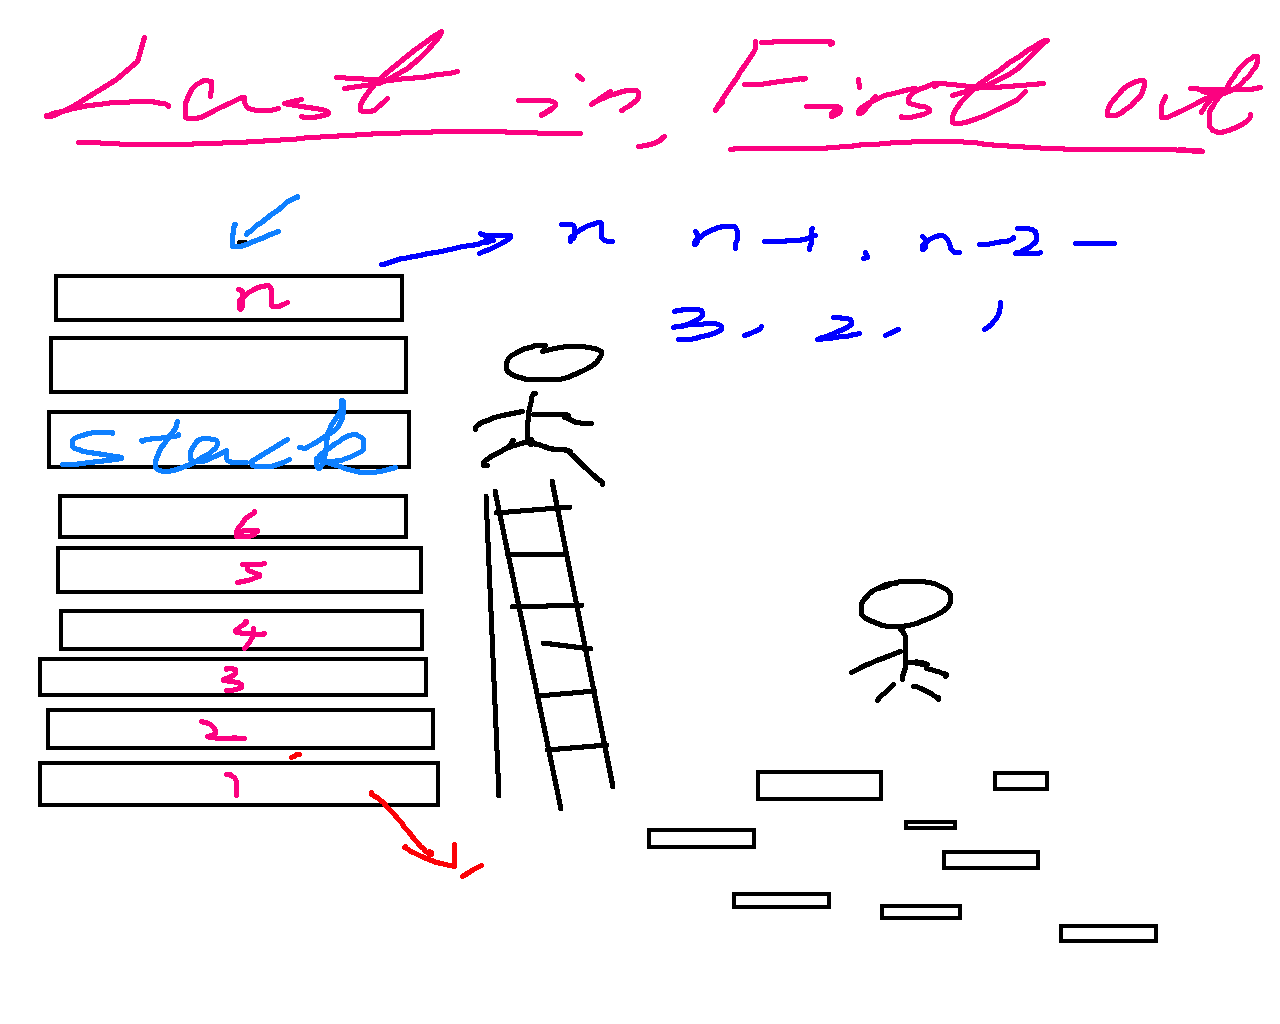 Last in, First out
n n-1, n-2 -
3, 2, 1
n
stack
6
5
4
3
2
1